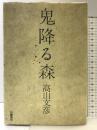 鬼降る森
高山文彦